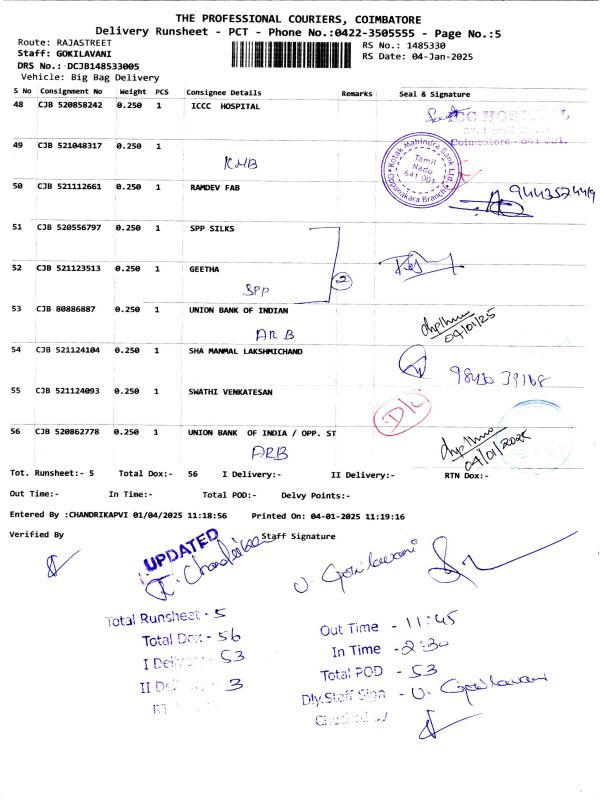 THE PROFESSIONAL COURIERS, COIMBATORE
Delivery Runsheet - PCT - Phone No.:0422-3505555 - Page No.:5
Route: RAJASTREET
RS No.: 1485330
Staff: GOKILAVANI
RS Date: 04-Jan-2025
DRS No.: DCJB148533005
Vehicle: Big Bag Delivery
S No Consignment No Weight PCS Consignee Details Remarks Seal & Signature
48 CJB 520858242 0.250 1 ICCC HOSPITAL
ICC HOSPITAL
Coimbatore - 641 001.
49 CJB 521048317 0.250 1
KMB
Kotak Mahindra Bank Ltd.
Tamil
Nadu
641 001
Uppanakara Branch
50 CJB 521112661 0.250 1 RAMDEV FAB
9443574419
51 CJB 520556797 0.250 1 SPP SILKS
52 CJB 521123513 0.250 1 GEETHA
SPP
2
53 CJB 80886887 0.250 1 UNION BANK OF INDIAN
ARB
04/01/25
54 CJB 521124104 0.250 1 SHA MANMAL LAKSHMICHAND
55 CJB 521124093 0.250 1 SWATHI VENKATESAN
D/L
56 CJB 520862778 0.250 1 UNION BANK OF INDIA / OPP. ST
ARB
04/01/2025
Tot. Runsheet:- 5 Total Dox:- 56 I Delivery:- II Delivery:- RTN Dox:-
Out Time:- In Time:- Total POD:- Delvy Points:-
Entered By :CHANDRIKAPVI 01/04/2025 11:18:56 Printed On: 04-01-2025 11:19:16
Verified By Staff Signature
UPDATED
V. Gokilavani
Total Runsheet - 5
Total Dox - 56
I Delivery - 53
II Delivery - 3
Out Time - 11:45
In Time - 2:30
Total POD - 53
Dly.Staff Sign - V. Gokilavani
Checked by